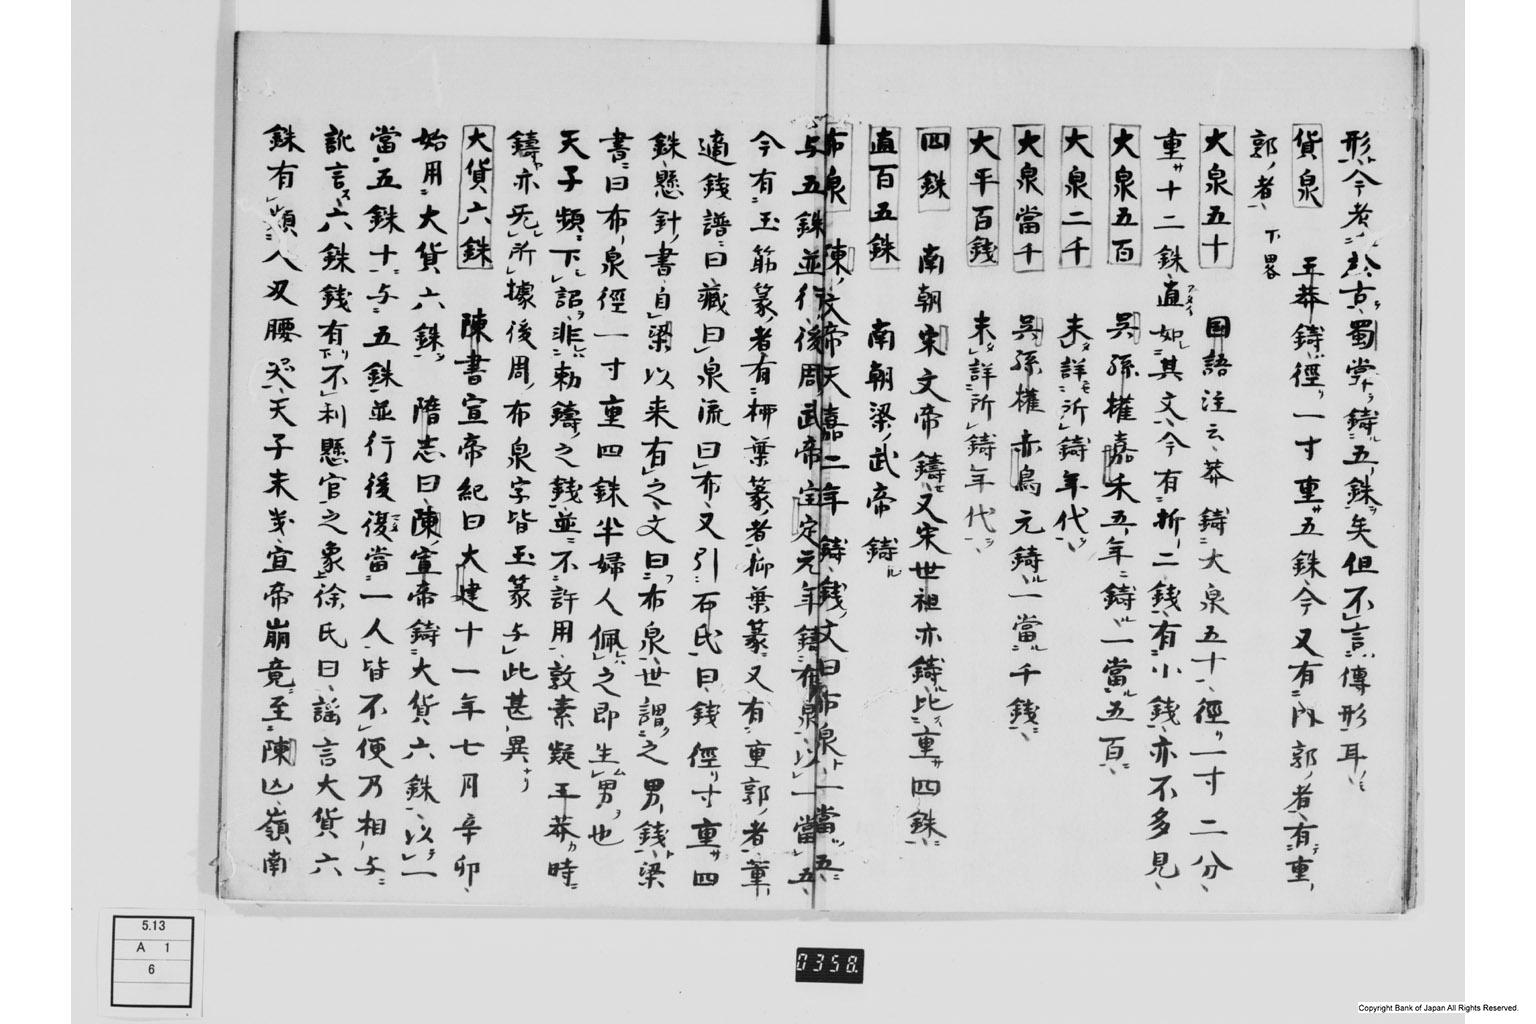 形ハ今考ニ於古ヲ蜀掌鋳ル五銖ヲ矣但不言傳形耳
貨泉　王莽鋳徑リ一寸重サ五銖今又有内郭ノ者有重
郭ノ者下畧
大泉五十　国語注云莽鋳大泉五十徑リ一寸二分
重サ十二銖直如其文今有折二銭有小銭亦不多見
大泉五百　呉孫權嘉禾五年ニ鋳一當五百
大泉二千　未詳所鋳年代
大泉當千　呉孫權赤烏元鋳一當千銭
大平百銭　未詳所鋳年代
四銖　南朝宋文帝鋳又宋世祖亦鋳比重サ四銖
直百五銖　南朝梁ノ武帝鋳ル
布泉　陳ノ文帝天嘉二年鋳銭文曰布泉一當五
与五銖並行後周武帝定元年鋳布泉以一當五
今有玉筋篆ノ者有柳葉篆ノ者柳葉篆又有重郭ノ者董
適銭譜ニ曰蔵曰泉流曰布又引石氏曰銭徑リ寸重サ四
銖懸針書自梁以来有之文曰布泉世謂之男銭梁
書ニ曰布泉徑一寸重四銖半婦人佩之即生男也
天子頻下詔非勅鋳之銭並不許用敦素疑王莽時
鋳亦无所據後周ノ布泉字皆玉篆与此甚異
大貨六銖　陳書宣帝紀曰大建十一年七月辛卯
始用大貨六銖　隋志曰陳ノ宣帝鋳大貨六銖以一
當五銖十与五銖並行後復當一人皆不便乃相与
訛言六銖銭有不利懸官之象徐氏曰謡言大貨六
銖有人叉腰哭天子未幾宣帝崩竟至陳亡嶺南
5.13
A 1
6
0358.
Copyright Bank of Japan All Rights Reserved.